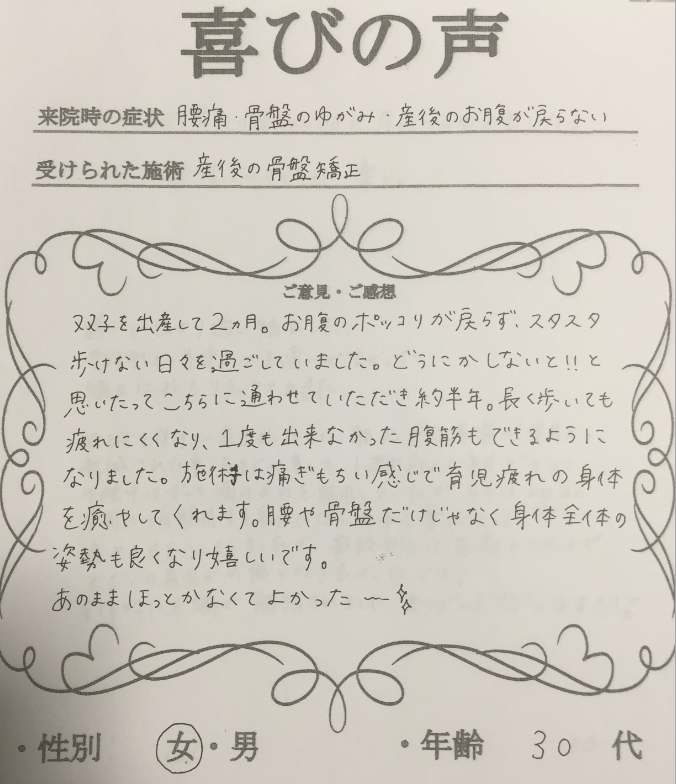 喜びの声
来院時の症状 腰痛・骨盤のゆがみ・産後のお腹が戻らない
受けられた施術 産後の骨盤矯正
ご意見・ご感想
双子を出産して2ヵ月。お腹のポッコリが戻らず、スタスタ
歩けない日々を過ごしていました。どうにかしないと!!と
思いたってこちらに通わせていただき約半年。長く歩いても
疲れにくくなり、1度も出来なかった腹筋もできるように
なりました。施術は痛ぎもちい感じで育児疲れの身体
を癒やしてくれます。腰や骨盤だけじゃなく身体全体の
姿勢も良くなり嬉しいです。
あのままほっとかなくてよかった〜
・性別 女・男 ・年齢 30代